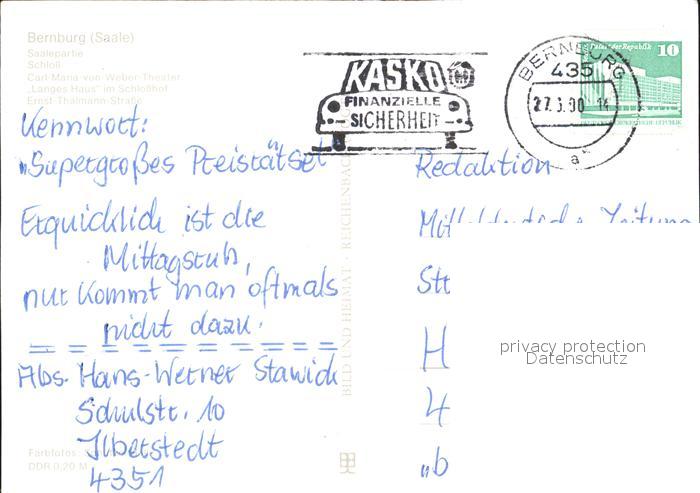 Bernburg (Saale)
Saalepartie
Schloß
Carl-Maria-von-Weber-Theater
„Langes Haus" im Schloßhof
Ernst-Thälmann-Straße
KASKO
FINANZIELLE
SICHERHEIT
BERNBURG
435
a
Palast der Republik 10
Kennwort:
„Supergroßes Preisrätsel"
Erquicklich ist die
Mittagsruh,
nur kommt man oftmals
nicht dazu.
Abs. Hans-Werner
Schulstr. 10
Ilberstedt
4351
Redaktion
Mitteldeutsche Zeitung
Str
H
4
„b
BILD UND HEIMAT · REICHENBACH
DDR 0,20 M
privacy protection
Datenschutz